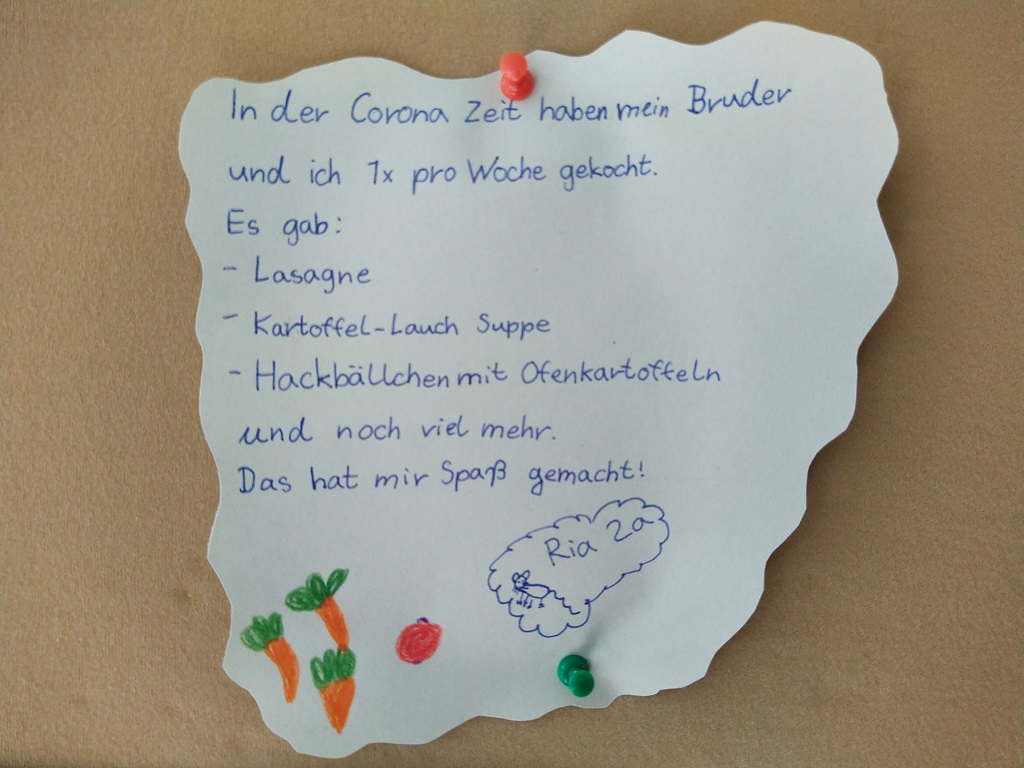 In der Corona Zeit haben mein Bruder
und ich 1x pro Woche gekocht.
Es gab:
- Lasagne
- Kartoffel-Lauch Suppe
- Hackbällchen mit Ofenkartoffeln
und noch viel mehr.
Das hat mir Spaß gemacht!
Ria 2a